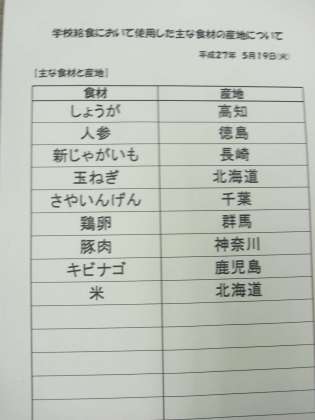 学校給食において使用した主な食材の産地について
平成27年 5月19日(火)
[主な食材と産地]
食材 産地
しょうが 高知
人参 徳島
新じゃがいも 長崎
玉ねぎ 北海道
さやいんげん 千葉
鶏卵 群馬
豚肉 神奈川
キビナゴ 鹿児島
米 北海道